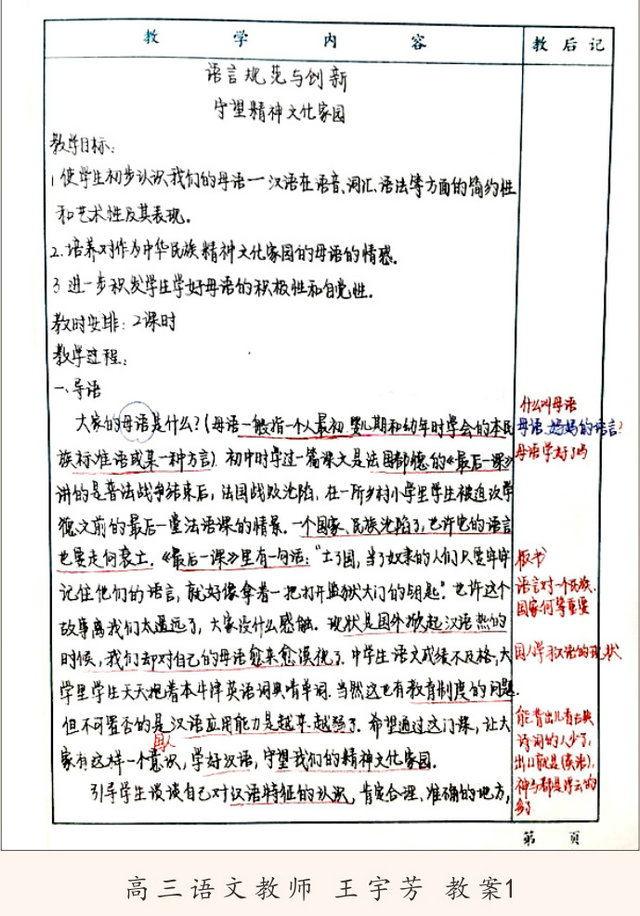 教学内容
教后记
语言规范与创新
守望精神文化家园
教学目标:
1.使学生初步认识我们的母语——汉语在语音、词汇、语法等方面的简约性
和艺术性及其表现。
2.培养对作为中华民族精神文化家园的母语的情感。
3.进一步积发学生学好母语的积极性和自觉性。
教时安排:2课时
教学过程:
一、导语
大家的母语是什么?(母语一般指一个人最初婴儿期和幼年时学会的本民
族标准语或某一种方言).初中时学过一篇课文是法国都德的《最后一课》
讲的是普法战争结束后,法国战败沦陷,在一所乡村小学里学生被迫改学
德文前的最后一堂法语课的情景.一个国家、民族沦陷了,也许它的语言
也要走向衰亡.《最后一课》里有一句话:"亡了国,当了奴隶的人们只要牢牢
记住他们的语言,就好像拿着一把打开监狱大门的钥匙."也许这个
故事离我们太遥远了,大家没什么感触.现状是国外掀起汉语热的
时候,我们却对自己的母语愈来愈漠视了.中学生语文成绩不及格,大
学里学生天天抱着本牛津英语词典啃单词.当然这也有教育制度的问题
但不可否的是汉语应用能力是越来越弱了.希望通过这门课,让大
国人
家有这样一个意识,学好汉语,守望我们的精神文化家园.
引导学生谈谈自己对汉语特征的认识,肯定合理、准确的地方,
什么叫母语
母语,妈妈的语言?
母语学好了吗
板书
语言对一个民族、
国家何等重要
国人学习汉语的现状
能背出几首古典
诗词的人少了,
出口就是(英语),
神马都是浮云的
多了
第 页
高三语文教师 王宇芳 教案1